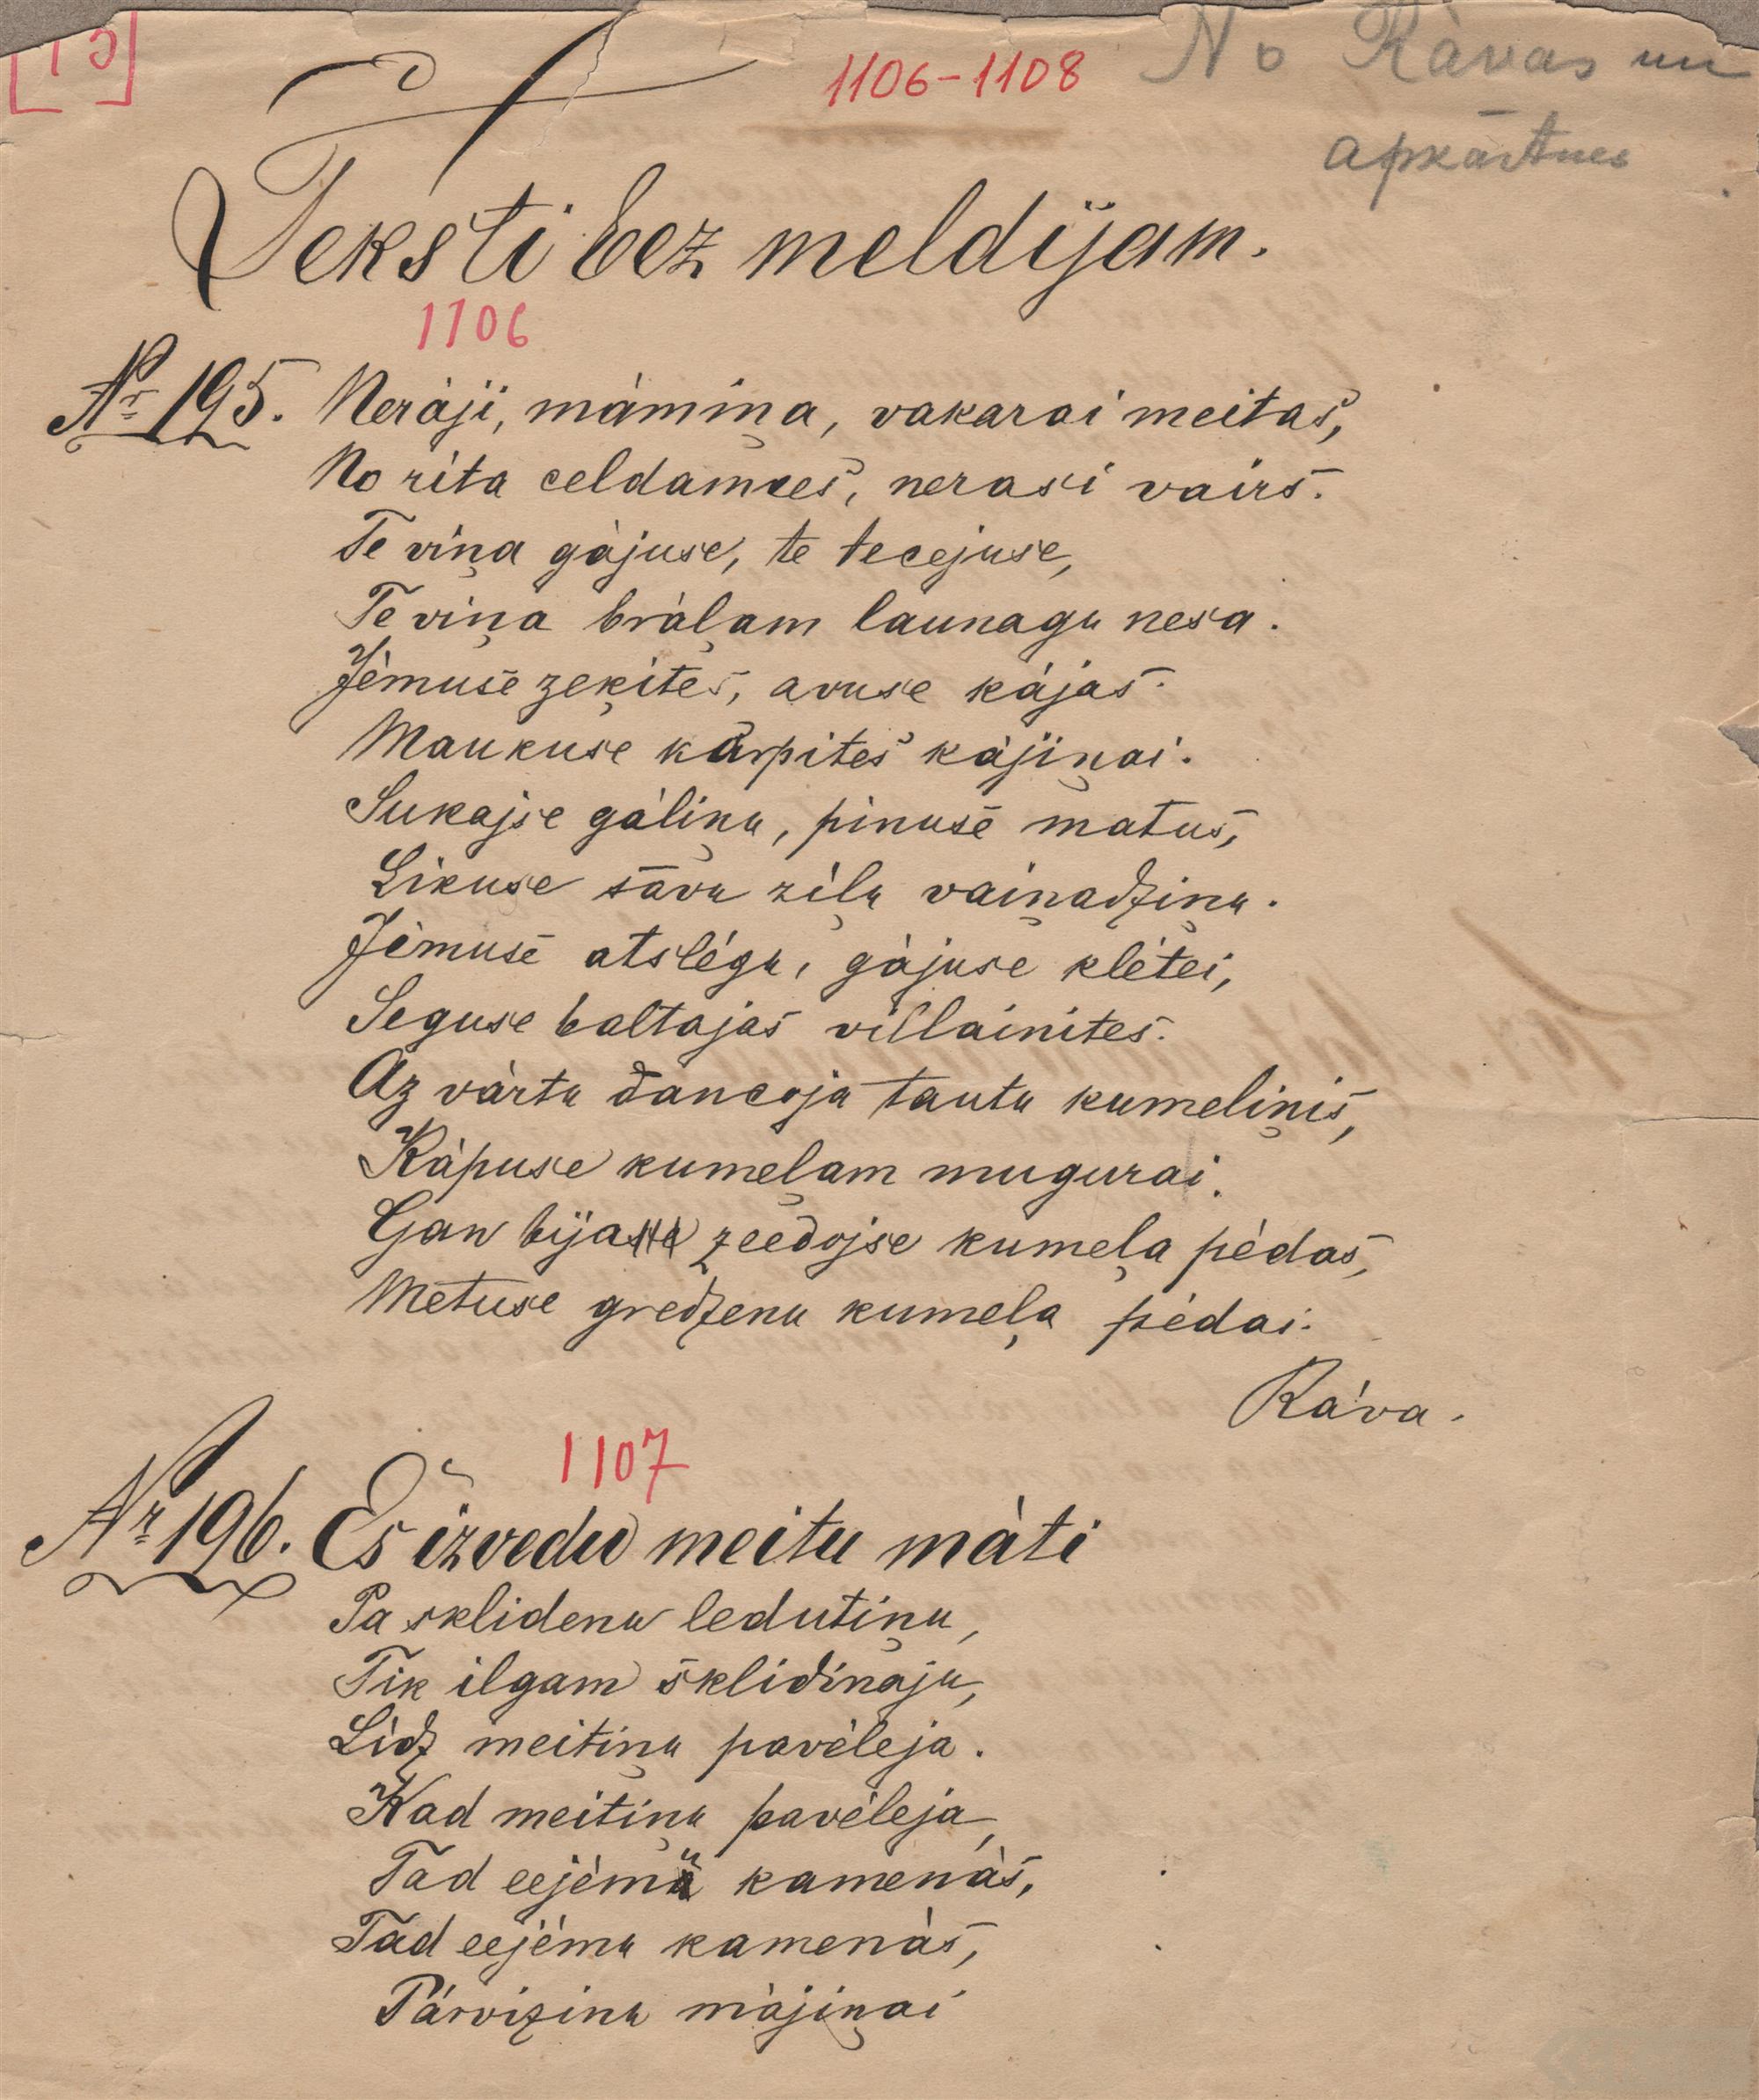 1106-1108
No Rāvas un
apkārtnes
Teksti bez meldijam.
1106
Nr 195. Neràji, màmiņa, vakarai meitas,
No rita celdamees, nerasi vairs.
Te viņa gàjuse, te tecejuse,
Te viņa bràļam launagu nesa.
Jèmuse zeķites, avuse kàjas.
Maukuse kurpites kàjiņai.
Sukajse gàliņu, pinuse matus,
Likuse savu zìļu vaiņadziņu.
Jèmuse atslégu, gàjuse klétei,
Seguse baltajas villainites.
Az vàrtu dancoja tautu kumeliņis,
Kàpuse kumeļam mugurai.
Gan bija zeedojse kumeļa pèdas,
Metuse gredzenu kumeļa pèdai.
Ràva.
1107
Nr 196. Es izvedu meitu màti
Pa sklidenu ledutiņu,
Tik ilgam sklidinàju,
Lìdz meitiņu pavèleja.
Kad meitiņu pavèleja,
Tad eejèmu kamenàs,
Tad eejèmu kamenàs,
Pàrvizinu màjiņai